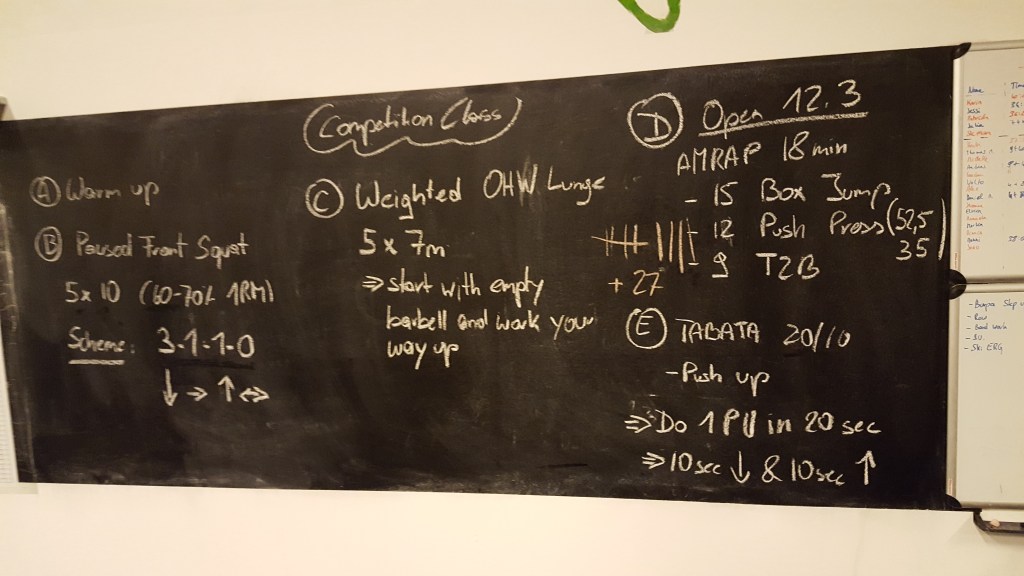 Competition Class
(A) Warm up
(B) Paused Front Squat
5x10 (60-70% 1RM)
Scheme: 3-1-1-0
↓ → ↑ ↔
(C) Weighted OHW Lunge
5 x 7m
⇒ start with empty
barbell and work your
way up
(D) Open 12.3
AMRAP 18min
- 15 Box Jump
- 12 Push Press (52,5
35)
- 9 T2B
+ 27
(E) TABATA 20/10
- Push up
⇒ Do 1 PU in 20 sec
⇒ 10sec ↓ & 10sec ↑
Name Time
- Row
- Ski ERG